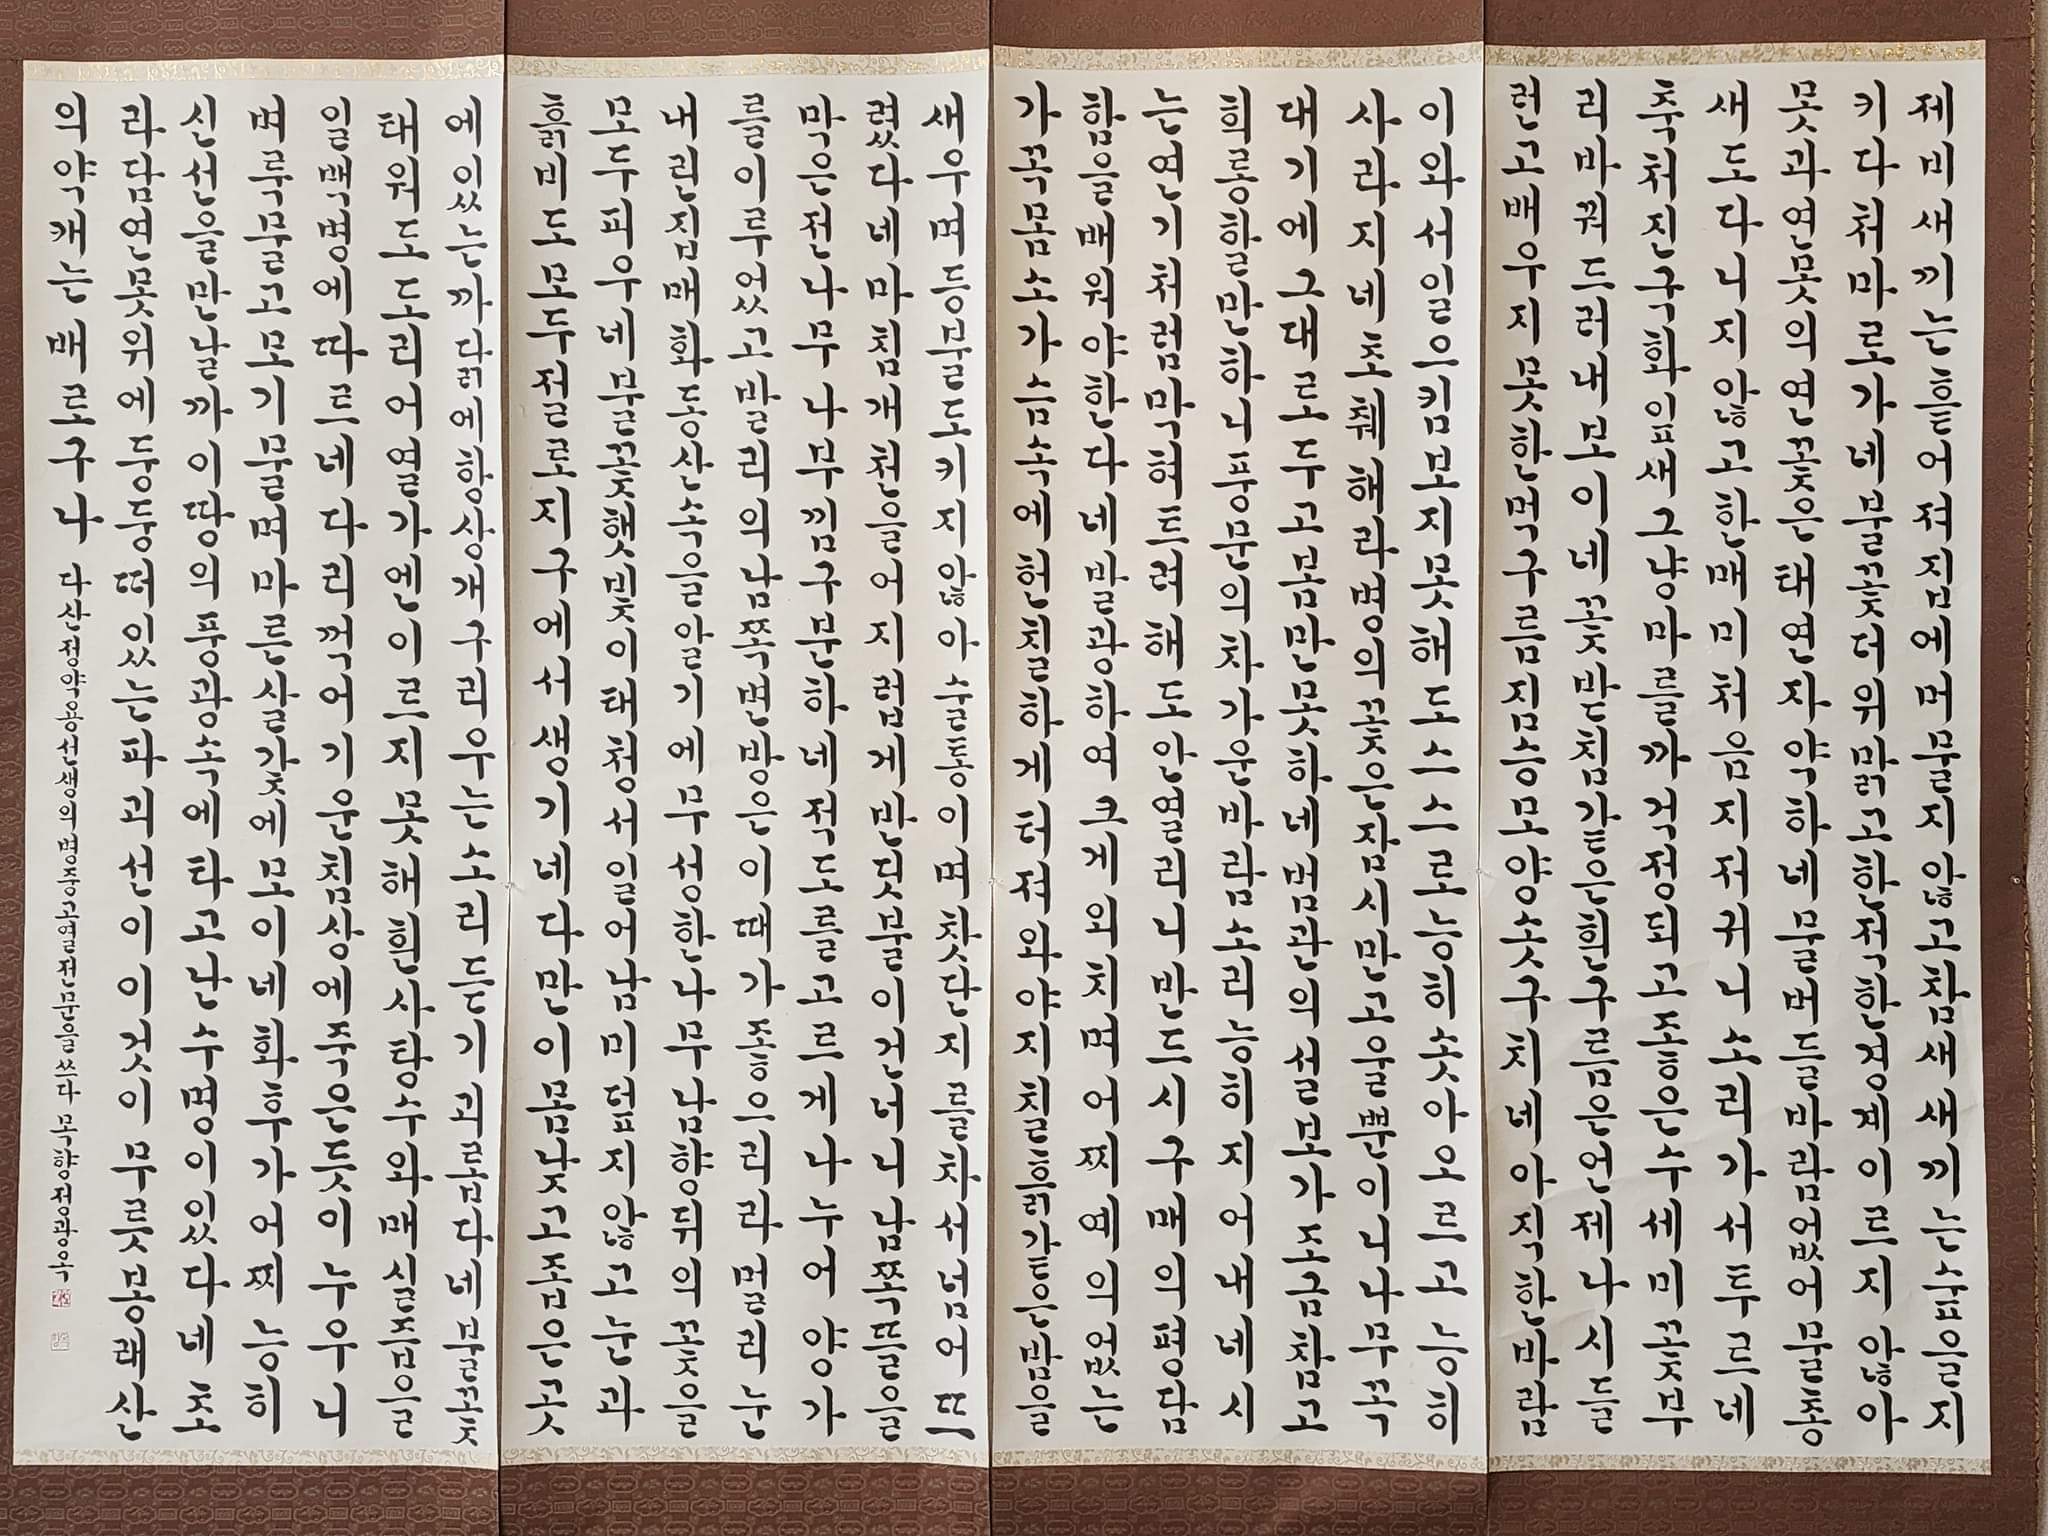 제비새끼는흩어져집에머물지않고참새새끼는숲을지
키다처마로가네물꽃더위맑고한적한경계이르지않아
못과연못의연꽃은태연자약하네물버들바람없어물총
새도다니지않고한매미처음지저귀니소리가서두르네
축처진국화잎새그냥마를까걱정되고좋은수세미꽃부
리바꿔드러내보이네꽃받침같은흰구름은언제나시들
런고배우지못한먹구름짐승모양솟구치네아직한바람
이와서일으킴보지못해도스스로능히솟아오르고능히
사라지네초췌해라병의꽃은잠시만고울뿐이니나무꼭
대기에그대로두고봄만못하네범관의설보가조금참고
희롱할만하니풍문의차가운바람소리능히지어내네시
는연기처럼막혀트려해도안열리니반드시구매의평담
함을배워야한다네발광하여크게외치며어찌예의없는
가꼭몸소가슴속에헌칠하게터져와야지칠흙같은밤을
새우며등불도키지않아술통이며찻단지를차서넘어뜨
렸다네마침개천을어지럽게반딧불이건너니남쪽뜰을
막은전나무나무낌구분하네적도들고르게나누어양가
를이루었고발리의남쪽면방은이때가좋으리라멀리눈
내린집매화동산속을알기에무성한나무남향뒤의꽃을
모두피우네불꽃햇빛이태청서일어남미덥지않고눈과
흙비도모두절로지구에서생기네다만이몸낮고좁은곳
에있는까닭에항상개구리우는소리듣기괴롭다네불꽃
태워도도리어열가엔이르지못해흰사탕수와매실즙을
일백병에따르네다리꺽어기운침상에죽은듯이누우니
벼룩물고모기물며마른살갗에모이네화후가어찌능히
신선을만날까이땅의풍광속에타고난수명이있다네초
라담연못위에둥둥떠있는파괴선이이것이무릇봉래산
의약캐는배로구나 다산정약용선생의병중고열전문을쓰다 목향정광옥